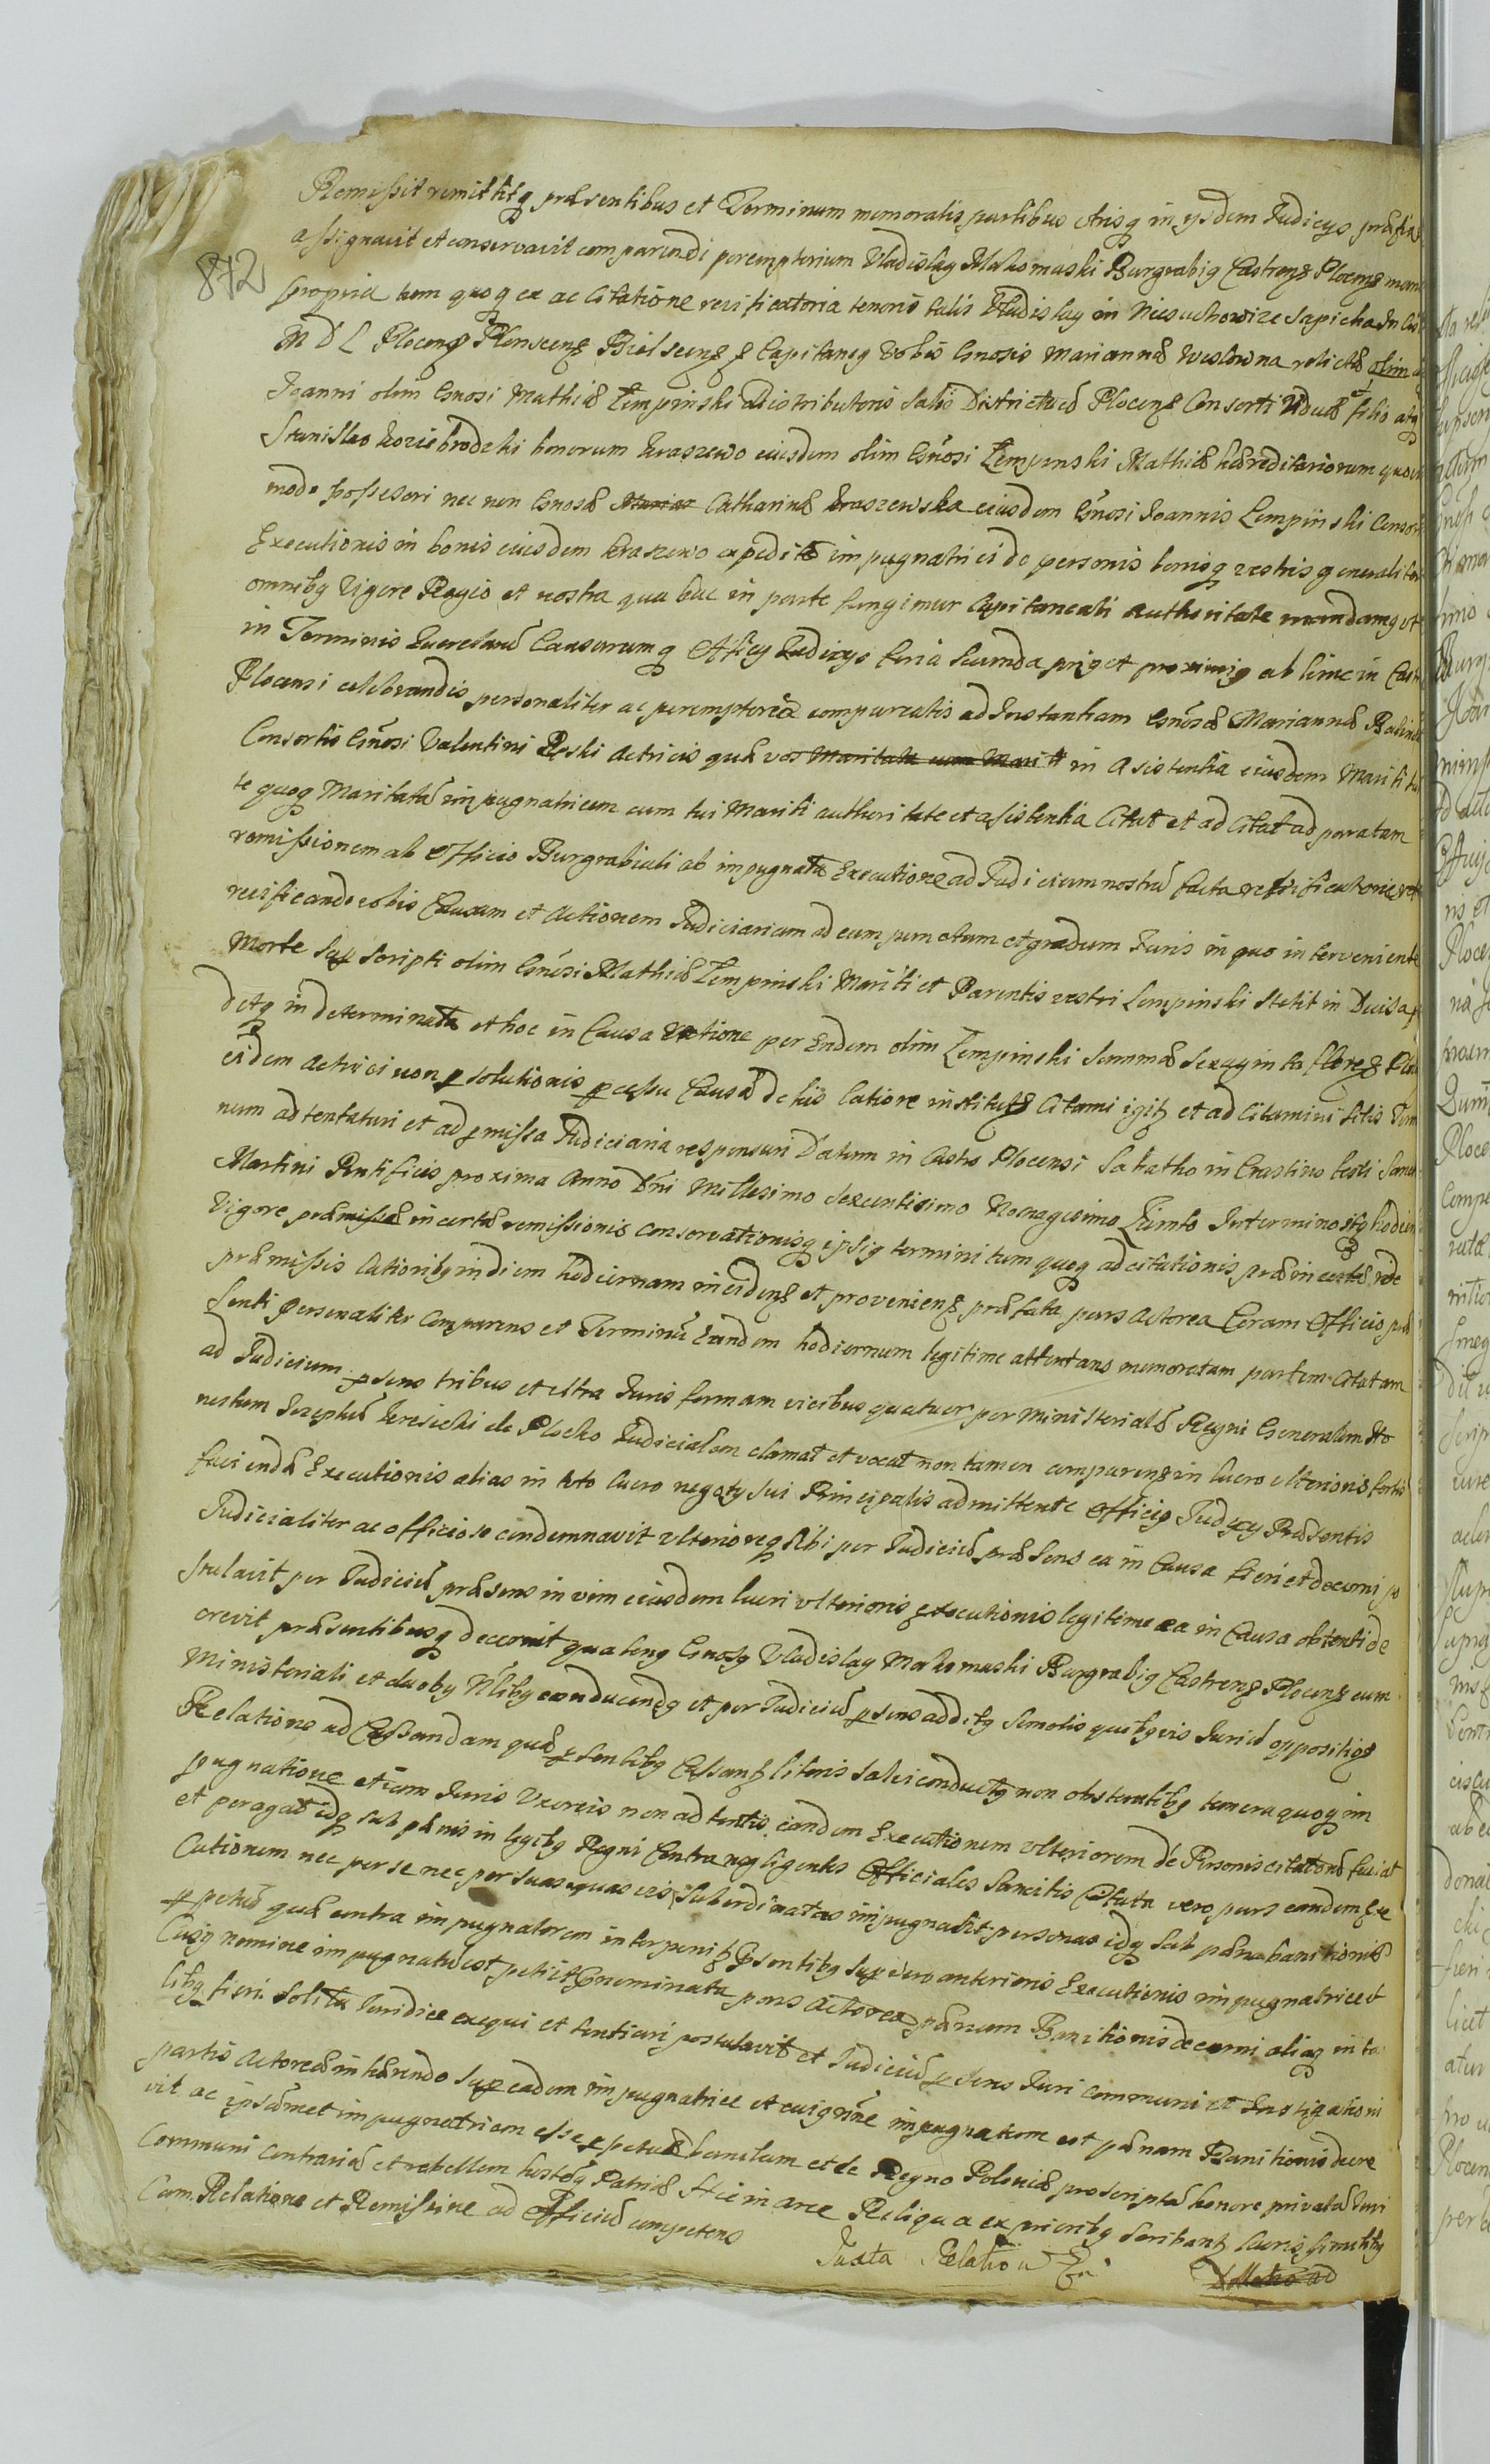 Remissit remittitq præsentibus et Terminum memoratis partibus utrisq in ijsdem Judicijs præfia
assignavit et conservavit comparendi peremptorium Vladislaq Makomaski Burgrabiq Castrenz Plocenz man
872
propria tum quoq ex ac Citatione reisificatoria tenoris talis Vladislaq in Niesuchowize Sapieha In Cis
M D L Plocenz Plonscenz Bielscenz z Capitaneq Vobis Gnosis Mariannæ Weslowna relictæ olim
Joanni olim Gnosi Mathiæ Lempinski Distributoris Salis Districtus Plocenz Consorti Viduæ et filio atq
Stanislao Koziebrodzki bonorum Kraszewo eiusdem olim Gnosi Lempinski Mathiæ hæreditariorum quovis
modo possesori nec non Gnosæ Mariæ Catharinæ Kraszewska eiusdem Gnosi Joannis Lempinski Consorti
Executionis in bonis eiusdem Kraszewo expeditæ impugnatrici de personis bonisq vestris generaliter
omnibq Vigore Regio et nostra qua hac in parte fungimur Capitaneali Authoritate mandamq ut
in Terminis Querelarum Causarumq Officij Judicijs feria secunda priq et proximiq ab hinc in Cast
Plocensi celebrandis personaliter ac peremptoriæ compareatis ad Instantiam Gnosæ Mariannæ
Consortis Gnosi Valentini Reski Actricis quæ vos Maritata cum Mariti in Asistentia eiusdem Mariti
te quoq Maritatam impugnatricem cum tui Mariti authoritate et asistentia Citat et ad Citat ad paratam
remissionem ab Officio Burgrabiali ab impugnata Executione ad Judicium nostrum facta
reisificando vobis Causam et Actionem Judiciariam ad eum punctum et gradum Juris in quo interveniente
Morte sup scripti olim Gnosi Mathiæ Lempinski Mariti et Parentis vestri Lempinski stetit in Decisa
detq indeterminata et hoc in Causa ratione per Eundem olim Lempinski Summæ Sexaginta florenz
eidem Actrici non p solutionis processu Causa de his latiore institutz Citami igitz et ad Citamini sitis
num ad tentaturi et ad pmissa Judiciaria responsuri Datum in Castro Plocensi Sabatho in Crastino festi Sanct
Martini Pontificis proxima Anno Dni Millesimo Sexcentisimo Nonagesimo Quinto In termino itq hodier
Vigore præmissæ incertæ remissionis conservationisq ipsiq termini tum quoq ad citationis præ incertæ
præmissis lationibq in diem hodiernam incidenz et provenienz præfata pars Actorea Coram Officio præ
senti personaliter comparens et Terminum Eundem hodiernum legitime attentans memoratam partem Citatam
ad Judicium psens tribus et ultra Juris formam vicibus quatuor per ministerialem Regni Generalem Ho
nestum Josephum de Plocko Judicialem clamat et vocat non tamen comparenz in lucro ulterioris fortis
faciendæ Executionis alias in toto lucro negotij sui Principalis admittente Officio Judicij Præsentis
Judicialiter ac officiose condemnavit ulterioreq Sibi per Judicium præsens ea in Causa fieri et decerni po
stulavit per Judicium præsens in vim eiusdem lucri ulterioris executionis legitime ea in Causa obtenti de
crevit præsentibusq decernit quatenq Gnosq Vladislaq Makomaski Burgrabiq Castrenz Plocenz cum
Ministeriali et duobq Nlibq conducendq et per Judicium psens additq semotis quibqvis Juris oppositioz
Relatione ad Cassandam quæ psentibq Cassanz literis Salvi conductq non obstantibq temeraquoq im
pugnatione etiam Juris Uxoreis non ad tentis eandem Executionem ulteriorem de Personis citatorum faciat
et peragat idq sub pænis in legibq Regni Contra negligentes Officiales Sancitis Citata vero pars eandem Exe
Cutionem nec per se nec per suas quas vis Subordinatas impugnabit personas idq sub pæna banitionis
p petuæ quæ contra impugnatorem interponitz Psentibq Sup vero anterioris Executionis impugnatrice et
Cuiq nomine impugnatum est petijt Pnominata pars Actorea pænam Banitionis decerni aliaq in ta
libq fieri solita Juridice exequi et sentiari postulavit et Judicium psens Juri communi et Instigationi
partis Actoreæ inhærendo Sup eadem impugnatrice et cuiq nne impugnatom est pænam Banitionis decre
vit ac ipsammet impugnatricem esse p petuæ banitam et de Regno Poloniæ proscriptam honore privatam Juri
Communi contrariam et rebellem hostemq Patriæ Hic in arce Reliqua ex prioribq Scribanz lucris similibq
Cum Relatione et Remissione ad Officium competens
Juxta Relation